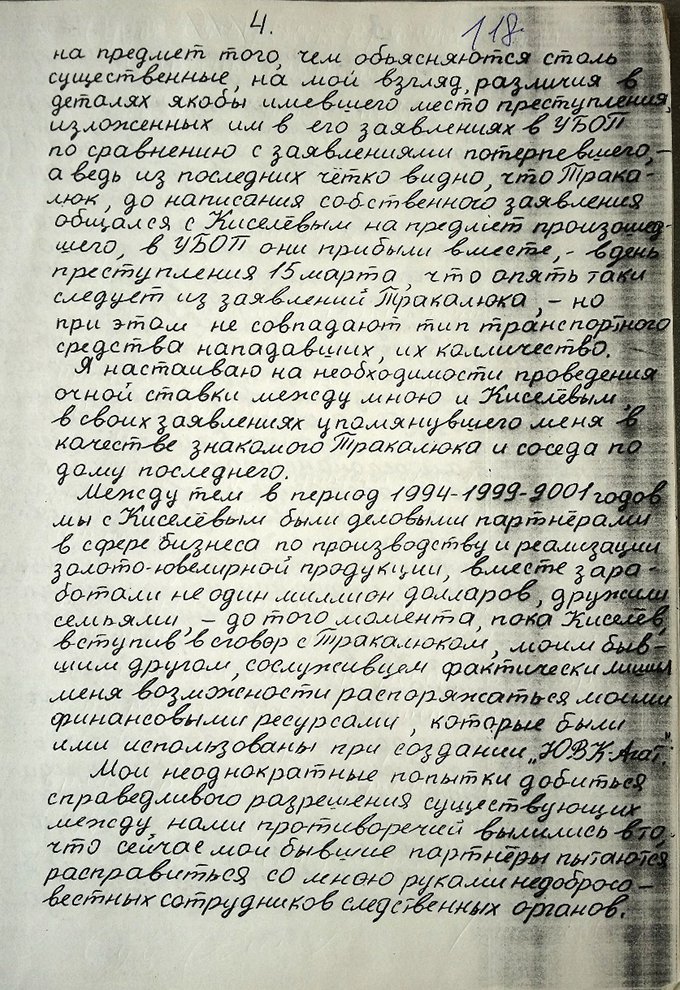 4.
118
на предмет того, чем объясняются столь
существенные, на мой взгляд, различия в
деталях якобы имевшего место преступления,
изложенных им в его заявлениях в УБОП
по сравнению с заявлениями потерпевшего, –
а ведь из последних чётко видно, что Трака-
люк, до написания собственного заявления
общался с Киселёвым на предмет произошед-
шего, в УБОП они прибыли вместе, - в день
преступления 15 марта, что опять таки
следует из заявлений Тракалюка, – но
при этом не совпадают тип транспортного
средства нападавших, их колличество.
Я настаиваю на необходимости проведения
очной ставки между мною и Киселёвым,
в своих заявлениях упомянувшего меня в
качестве знакомого Тракалюка и соседа по
дому последнего.
Между тем в период 1994-1999-2001 годов
мы с Киселёвым были деловыми партнёрами
в сфере бизнеса по производству и реализации
золото-ювелирной продукции, вместе зара-
ботали не один миллион долларов, дружили
семьями, – до того момента, пока Киселёв,
вступив в сговор с Тракалюком, моим быв-
шим другом, сослуживцем фактически лишил
меня возможности распоряжаться моими
финансовыми ресурсами, которые были
ими использованы при создании „ЮВК-Агат."
Мои неоднократные попытки добиться
справедливого разрешения существующих
между нами противоречий вылились в то,
что сейчас мои бывшие партнёры пытаются
расправиться со мною руками недобросо-
вестных сотрудников следственных органов.